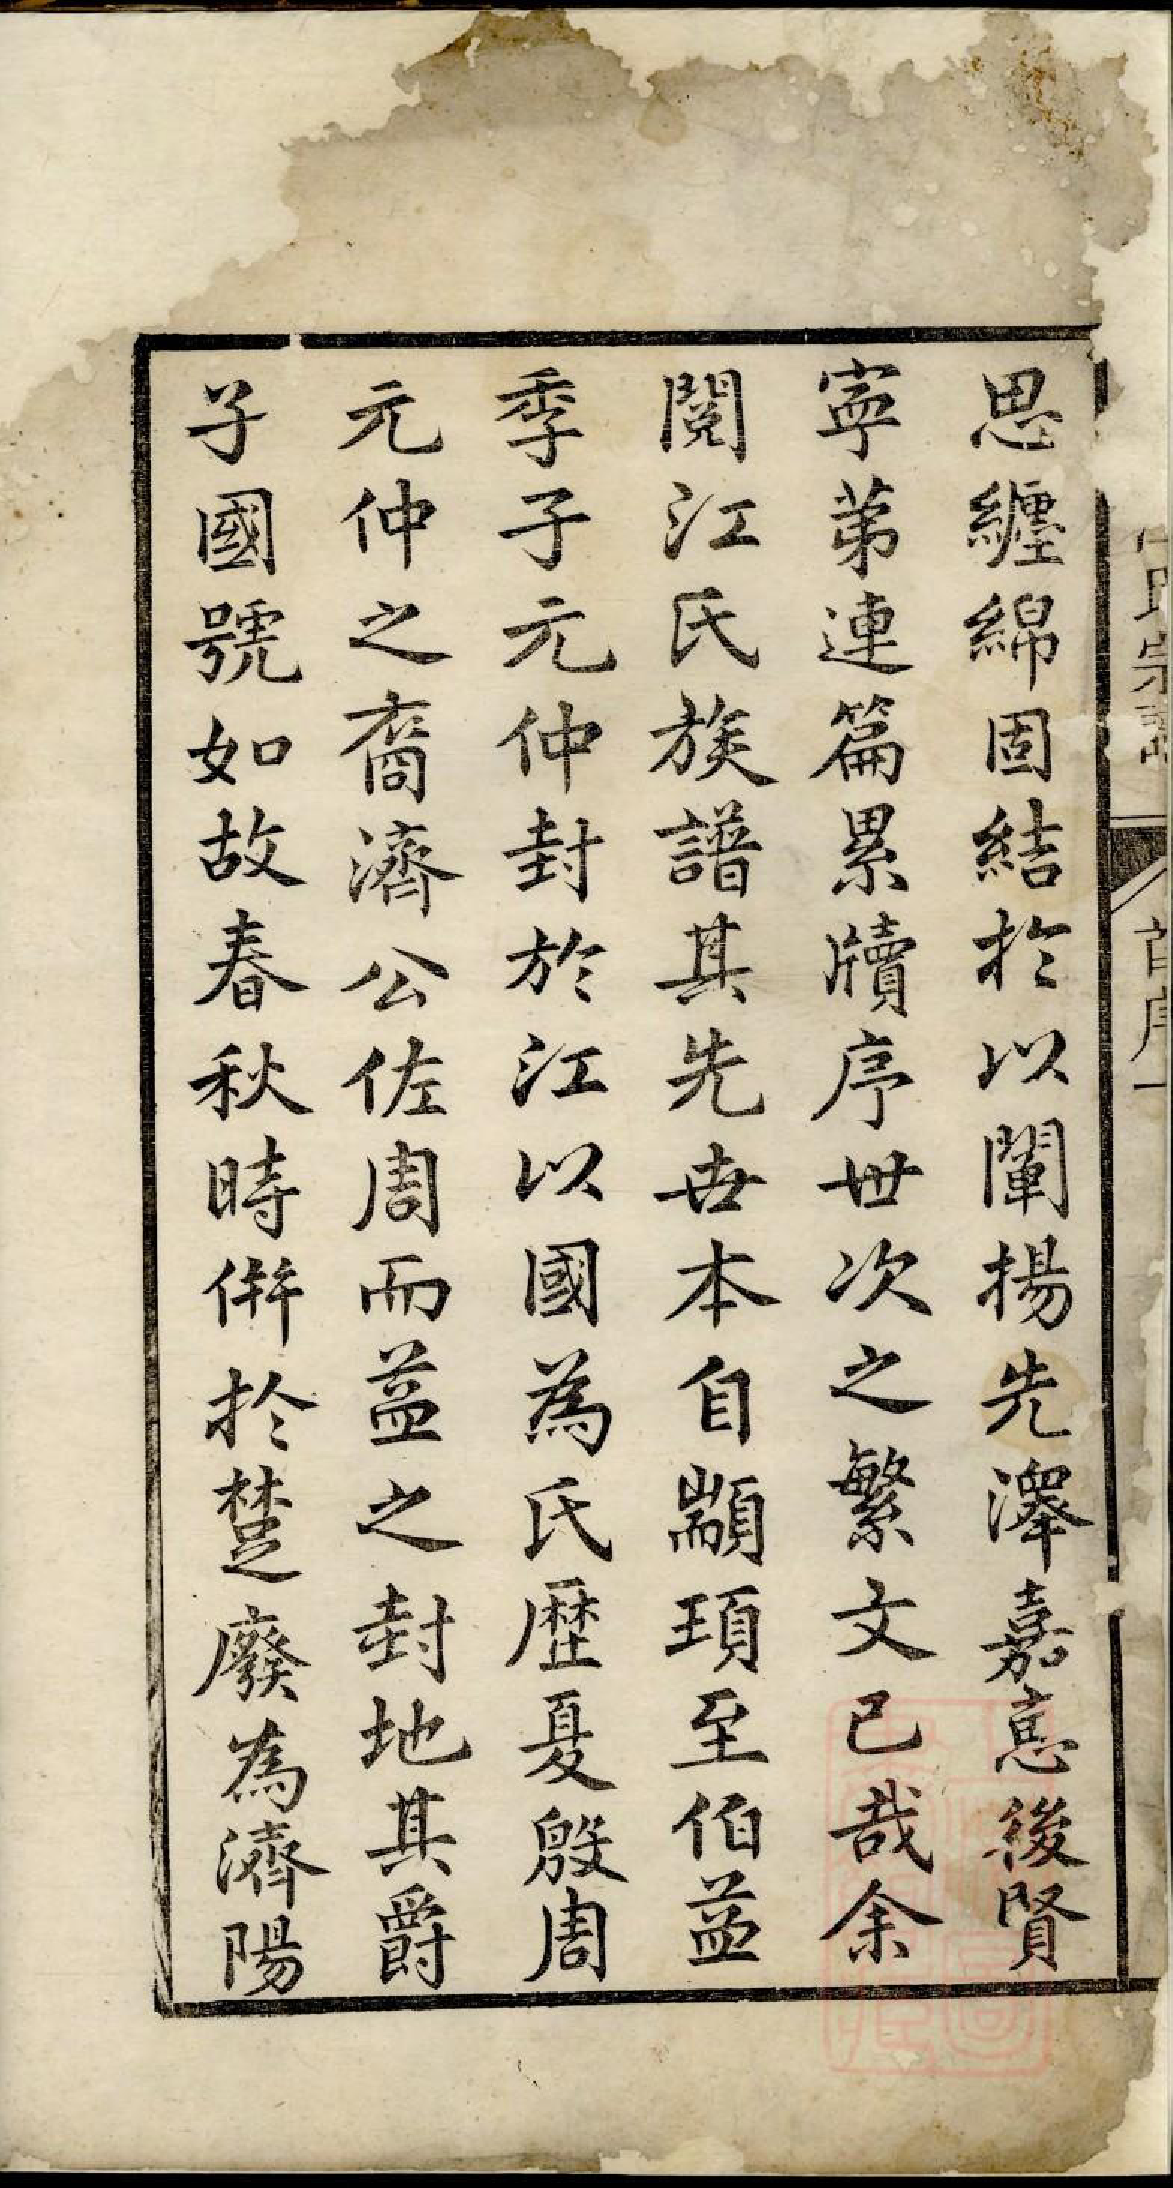 思纏綿固結於以闡揚先澤嘉惠後賢
寧第連篇累牘序世次之繁文已哉余
閱江氏族譜其先世本自顓頊至伯益
季子元仲封於江以國為氏歷夏殷周
元仲之裔濟公佐周而益之封地其爵
子國號如故春秋時併於楚廢為濟陽
氏宗譜
首序